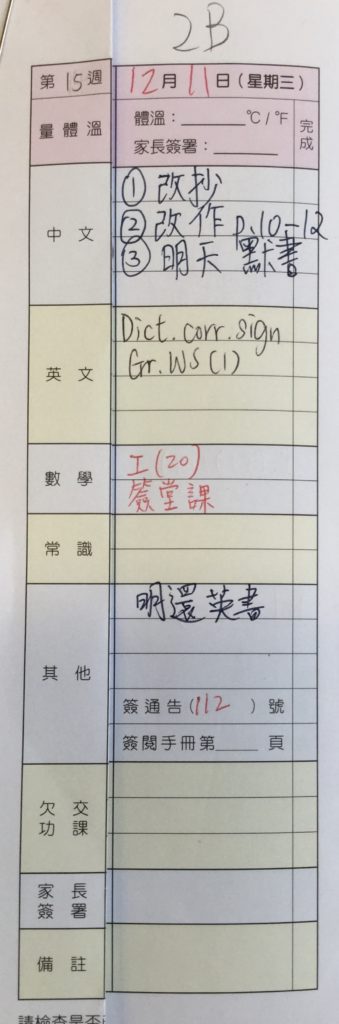 2B
第15週 12月11日(星期三)
量體溫 體溫：______℃/℉ 完成
家長簽署：______
中文 ①改抄
②改作 p.10-12
③明天 默書
英文 Dict.corr.sign
Gr.WS(1)
數學 工(20)
簽堂課
常識
其他 明還英書
簽通告(112)號
簽閱手冊第____頁
欠交功課
家長簽署
備註